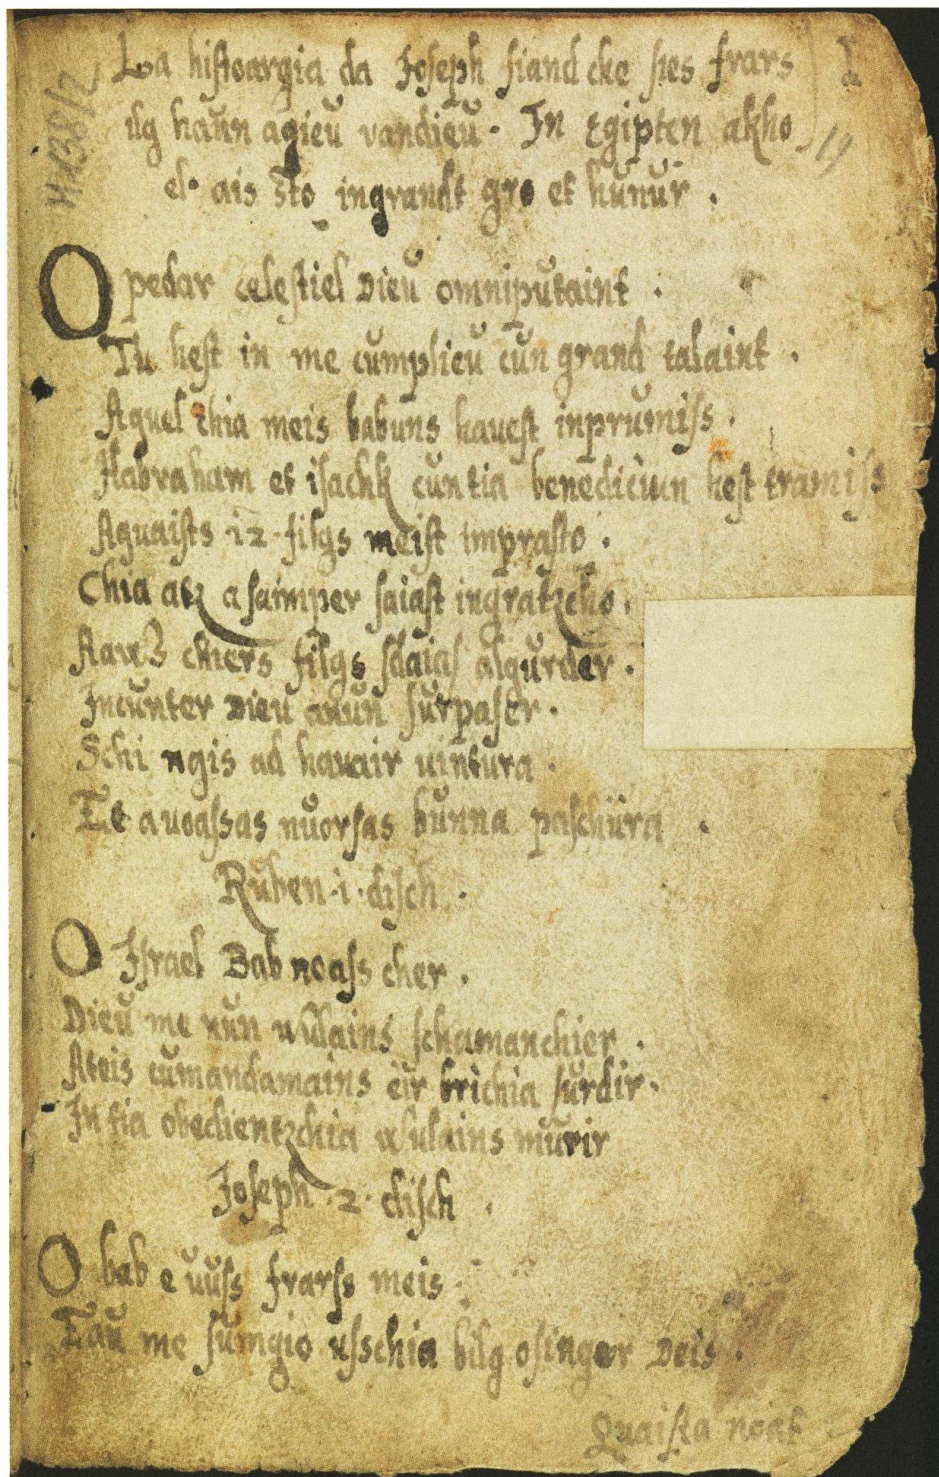 La histoargia da Joseph siand che sies frars
ilg haun agieu vandieu · In Egipten akho
el · ais sto ingrandt gro et hunur ·
O pedar celestiel Dieu omniputaint ·
Tu hest in me cumplieu cun grand talaint ·
Aquel chia meis babuns havest inprumiss ·
Habraham et isachk cun tia benediciun hest tramiss
Aquaists · 12 · filgs meist imprasto ·
Chia atz a saimper saiast ingratzcho ·
chiers filgs sdaias algurder ·
Incunter Dieu anun surpaser ·
Schi ngis ad havair vintura ·
Et avoassas nuorsas bunna paschiura ·
Ruben · 1 · disch ·
O Israel Bab noass cher ·
Dieu me nun vulains schamanchier ·
Ateis cumandamains eir brichia surdir ·
In tia obedientzchia vulains murir
Joseph · 2 · disch ·
O bab e vuss frarss meis ·
sumgio usschia bilg Deis ·
Quaista noat